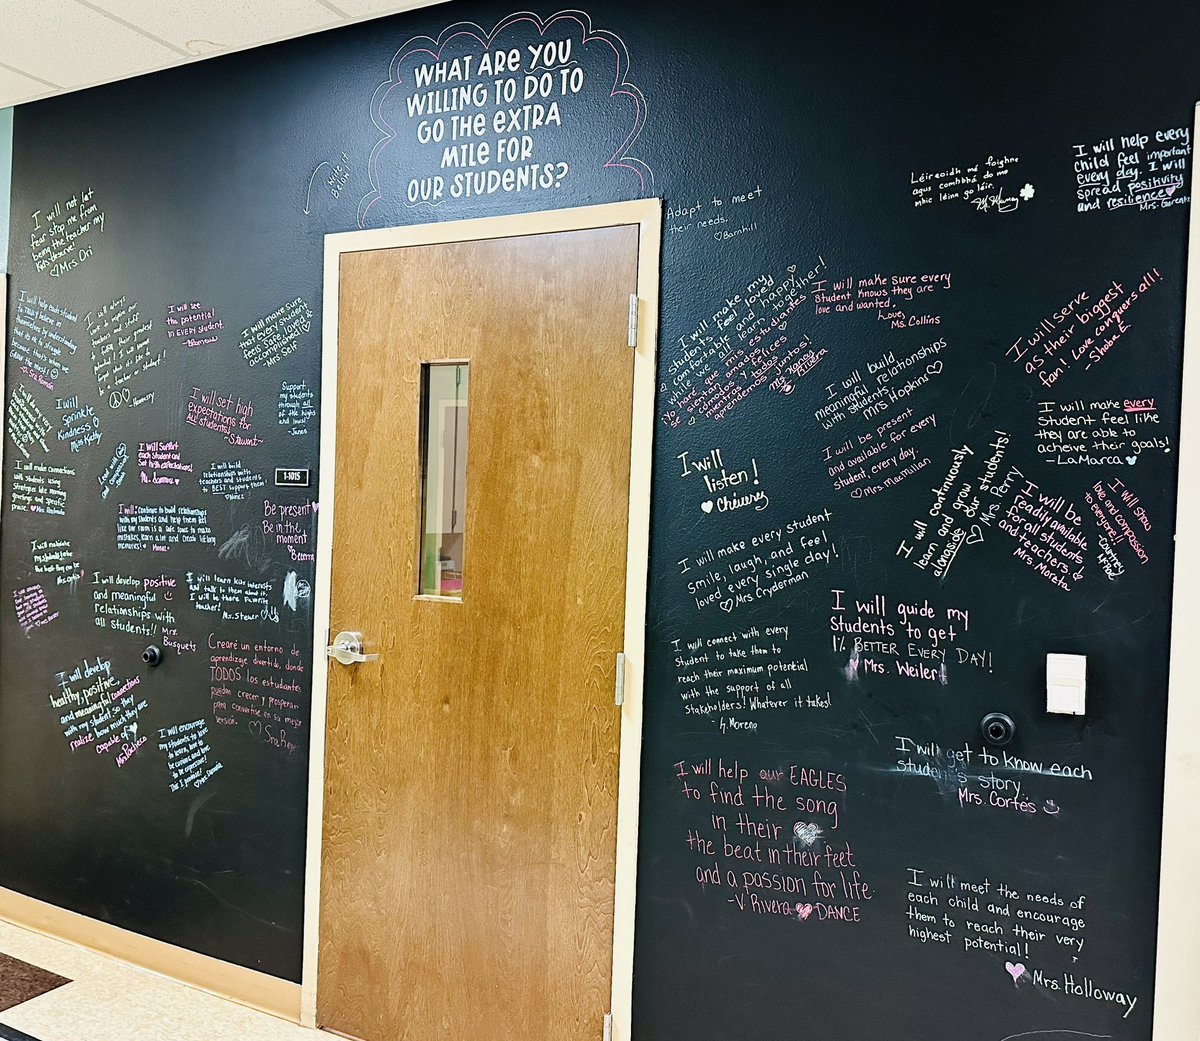 WHAT ARE YOU
WILLING TO DO TO
GO THE EXTRA
MILE FOR
OUR STUDENTS?
I will not let
fear stop me from
being the teacher my
kids deserve!
♡Mrs. Ori
I will help each student
to truly believe in
I will see
the potential
in EVERY student.
I will make sure
that every student
feels safe, loved &
accomplished!
Mrs Self
I will
Sprinkle
Kindness♡
I will set high
expectations for
ALL students!
Stewart~
Support
my students
through all
of the highs
and lows!
I will support
each student and
set high expectations!
I will build
relationships with
teachers and students
to BEST support them!
1-1015
I will make connections
with students using
strategies like morning
greetings and specific
praise.
I will: continue to build relationships
with my students and help them feel
like our room is a safe space to make
mistakes, learn a lot and create lifelong
memories!
Be present♥
Be in the
moment
♡Becerra
I will develop positive
and meaningful
relationships with
all students!! Mrs.
Busquets
I will learn kids interests
and talk to them about it.
I will be there favorite
teacher!
Crearé un entorno de
aprendizaje divertido, donde
TODOS los estudiantes
puedan crecer y prosperar
para convertirse en su mejor
versión.
I will develop
healthy, positive,
and meaningful connections
with my student so they
realize how much they are
capable of♥
Mrs. Pacheco
I will encourage
my students to love
to learn, love to
Adapt to meet
their needs.
♡Barnhill
Léireoidh mé foighne
agus comhbhá do mo
mhic léinn go léir.
I will help every
child feel important
every day. I will
spread positivity
and resilience♥
I will make my
students feel loved,
comfortable and happy
while we all learn together!
Yo haré que mis estudiantes
se sientan amados,
cómodos y felices
aprendemos juntos!
Rivera
I will make sure every
student knows they are
love and wanted.
Love,
Ms. Collins
I will serve
as their biggest
fan! Love conquers all!
I will build
meaningful relationships
with students.
Mrs Hopkins♡
I will make every
Student feel like
they are able to
acheive their goals!
-LaMarca
I will be present
and available for every
student, every day.
♡Mrs Macmillan
I will
listen!
I will continuously
learn and grow
alongside our students!
♡Mrs. Perry
I will be
readily available
for all students
and teachers.
Mrs. Moreta
I will show
love and compassion
to everyone!
I will make every student
smile, laugh, and feel
loved every single day!
♡Mrs Cryderman
I will guide my
Students to get
1% BETTER EVERY DAY!
Mrs. Weiler
I will connect with every
Student to take them to
reach their maximum potential
with the support of all
Stakeholders! Whatever it takes!
I will get to know each
student's story.
Mrs. Cortés
I will help our EAGLES
to find the song
in their ♡
the beat in their feet
and a passion for life.
-V Rivera♥DANCE
I will meet the needs of
each child and encourage
them to reach their very
highest potential!
♥ Mrs. Holloway